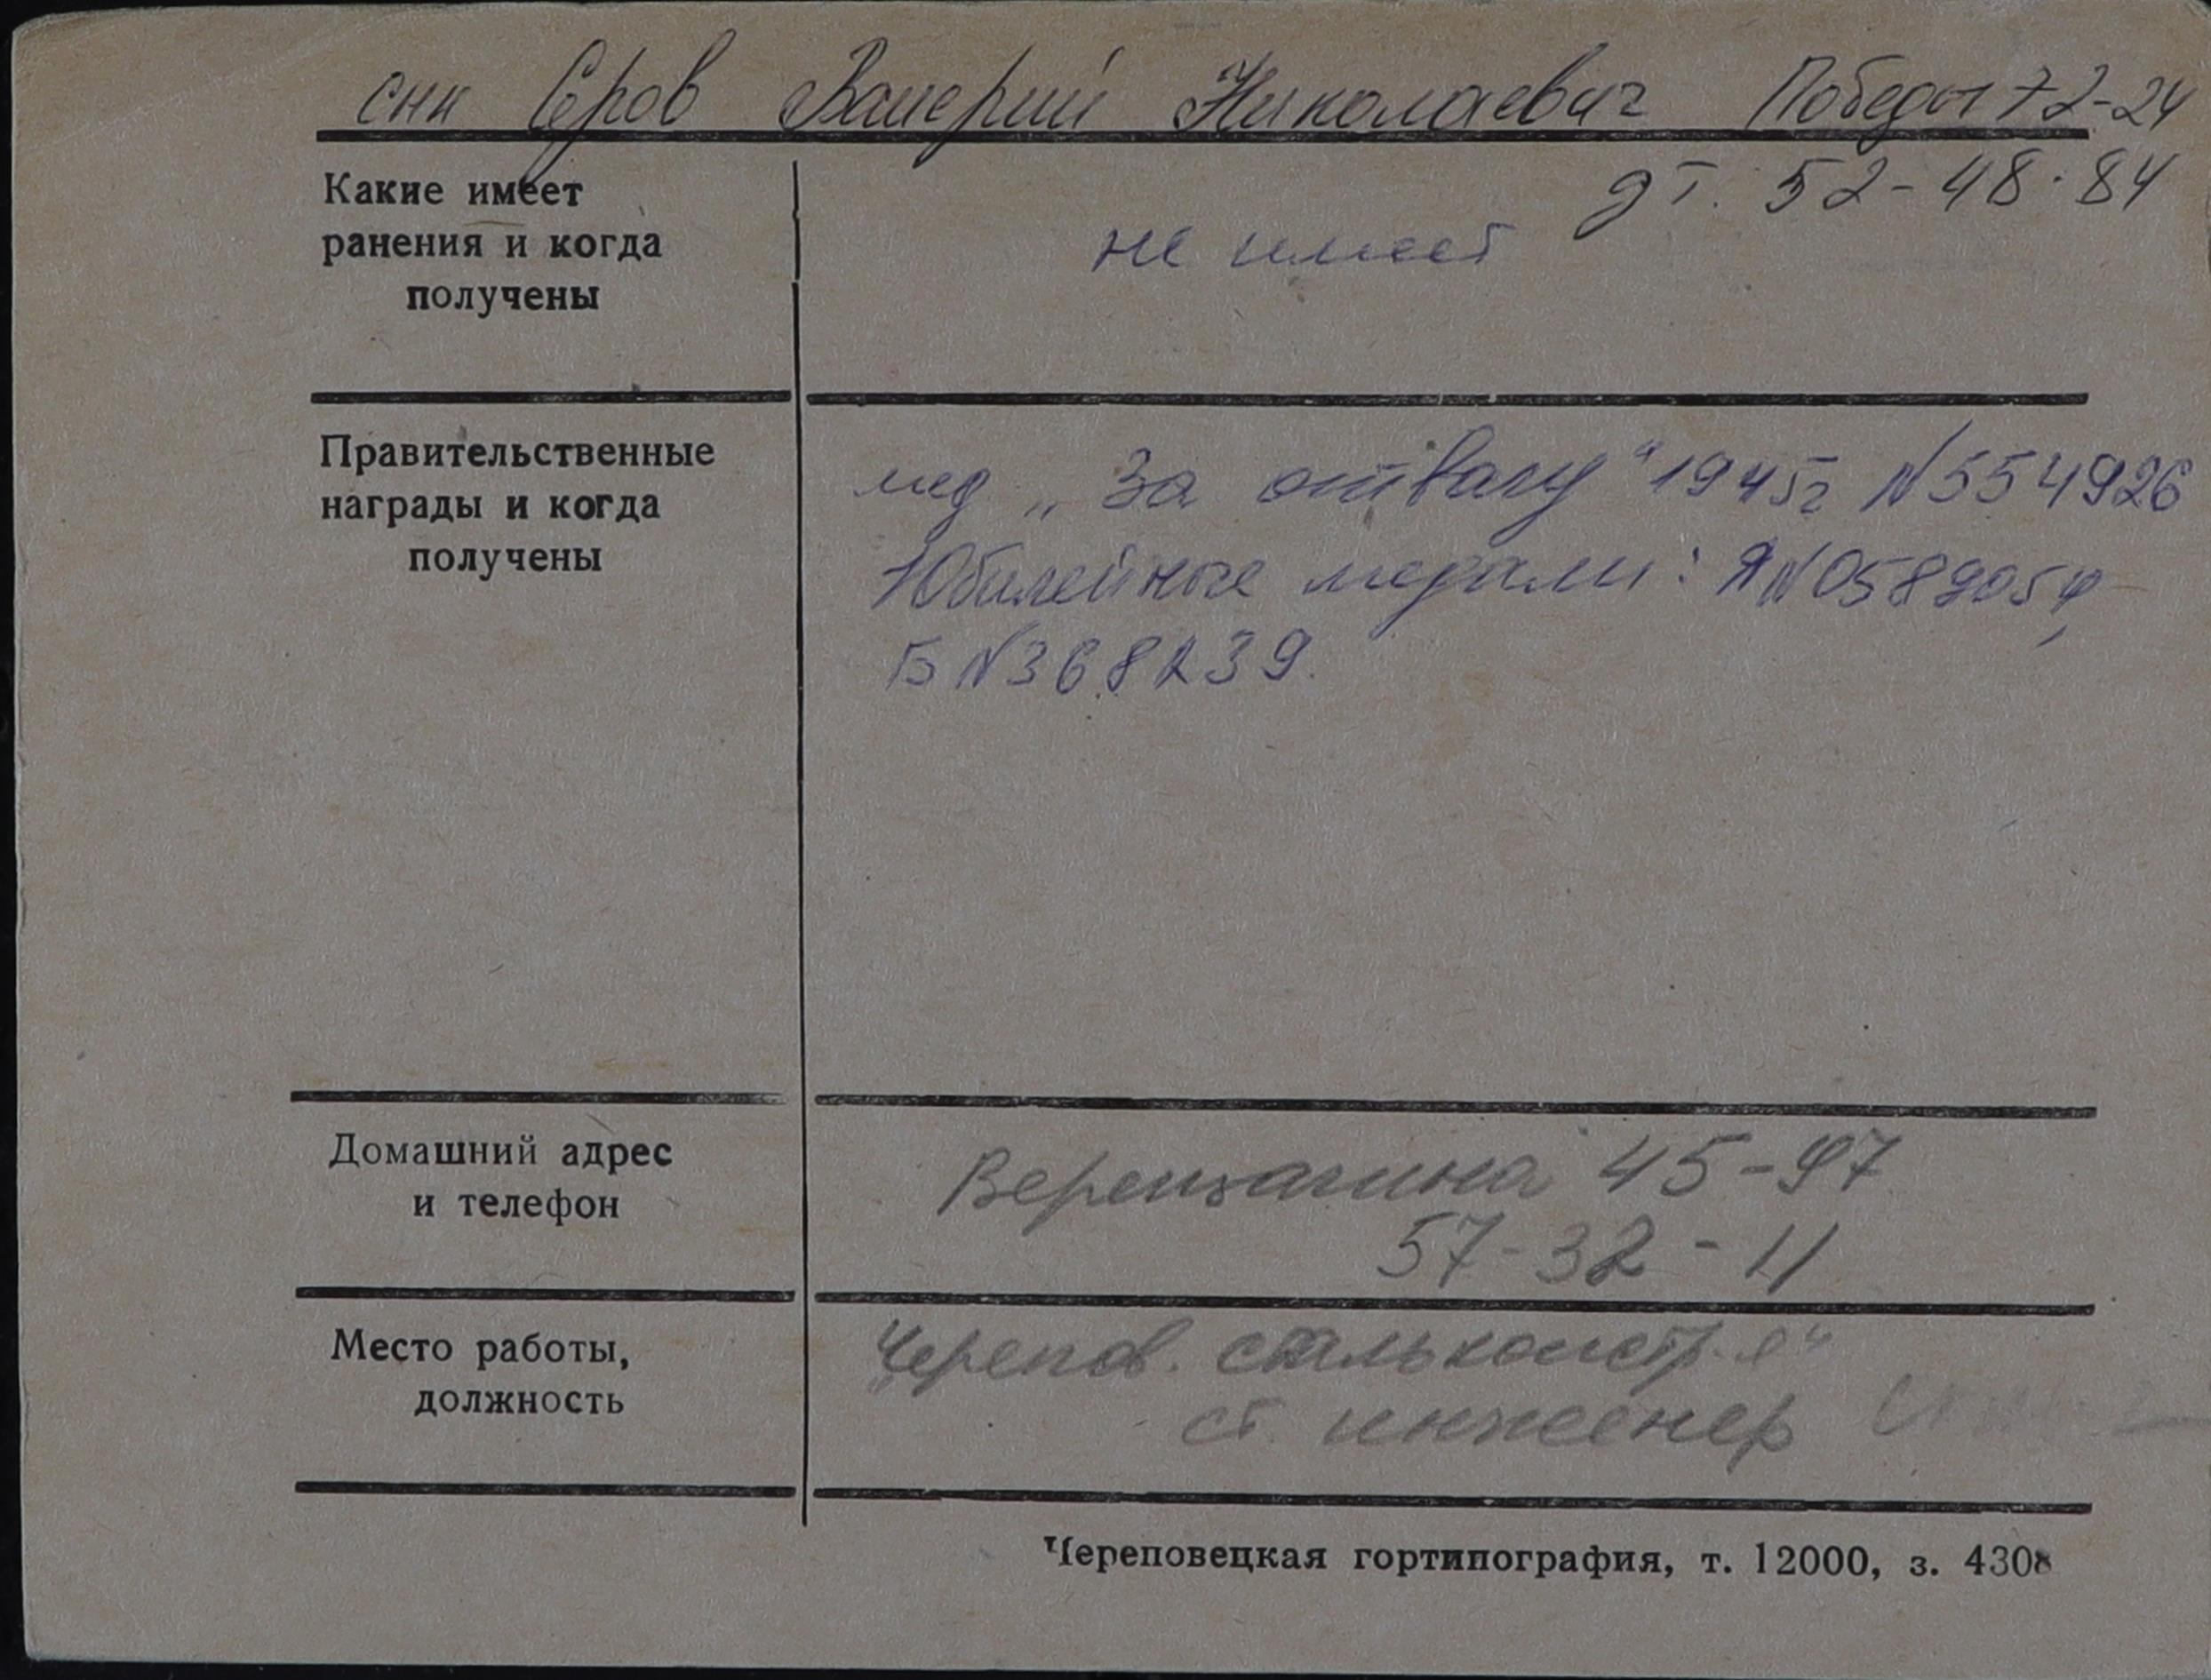 сын Серов Валерий Николаевич Победы 72-24
дт. 52-48-84
Какие имеет
ранения и когда
получены
не имеет
Правительственные
награды и когда
получены
мед „За отвагу“ 1945г N554926
Юбилейные медали: Я N0589054,
Б N368239.
Домашний адрес
и телефон
Верещагина 45-97
57-32-11
Место работы,
должность
Черепов. стальконстр-я“
ст. инженер
Череповецкая гортипография, т. 12000, з. 4308